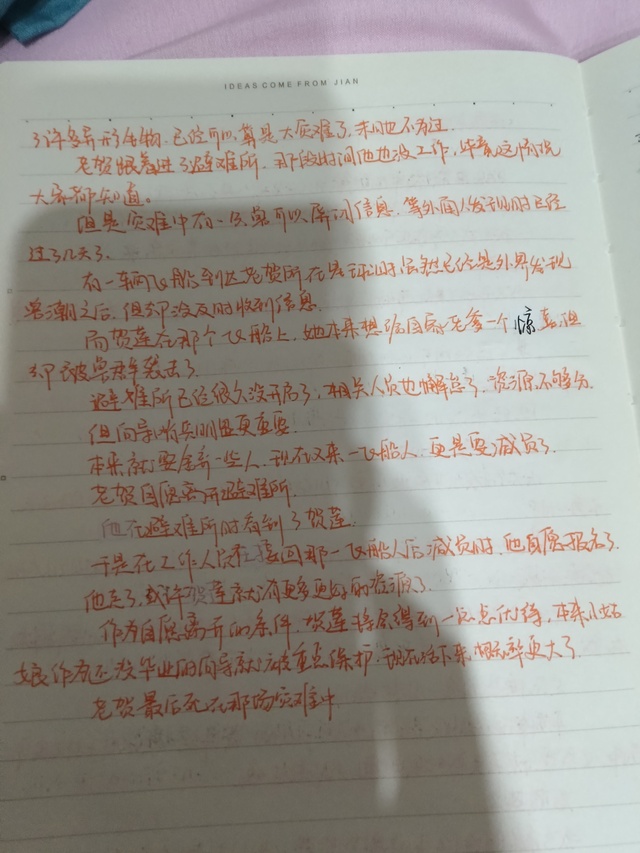 IDEAS COME FROM JIAN
了许多异形生物,已经可以算是大灾难了,末日也不为过.
老贺跟着进了避难所,那段时间他也没工作,毕竟这情况
大家都知道。
但是灾难中有一只兽可以屏闭信息,等外面人发现时已经
过了几天了.
有一辆飞船到达老贺所在星球时居然已经是外界发现
兽潮之后,但却没及时收到信息.
而贺莲在那个飞船上,她本来想给自家老爹一个惊喜但
却被兽群袭击了
避难所已经很久没开启了,相关人员也懈怠了,资源不够分.
但向导哨兵明显更重要.
本来就要舍弃一些人,现在又来一飞船人,更是要减员了.
老贺自愿离开避难所.
他在避难所时看到了贺莲
于是在工作人员在接回那一飞船人后减员时,他自愿报名了.
他走了,或许贺莲就会有更多更好的资源了.
作为自愿离开的条件,贺莲将会得到一点点优待,本来小姑
娘作为还没毕业的向导就应该重点保护,现在活下来概率更大了
老贺最后死在那场灾难中.